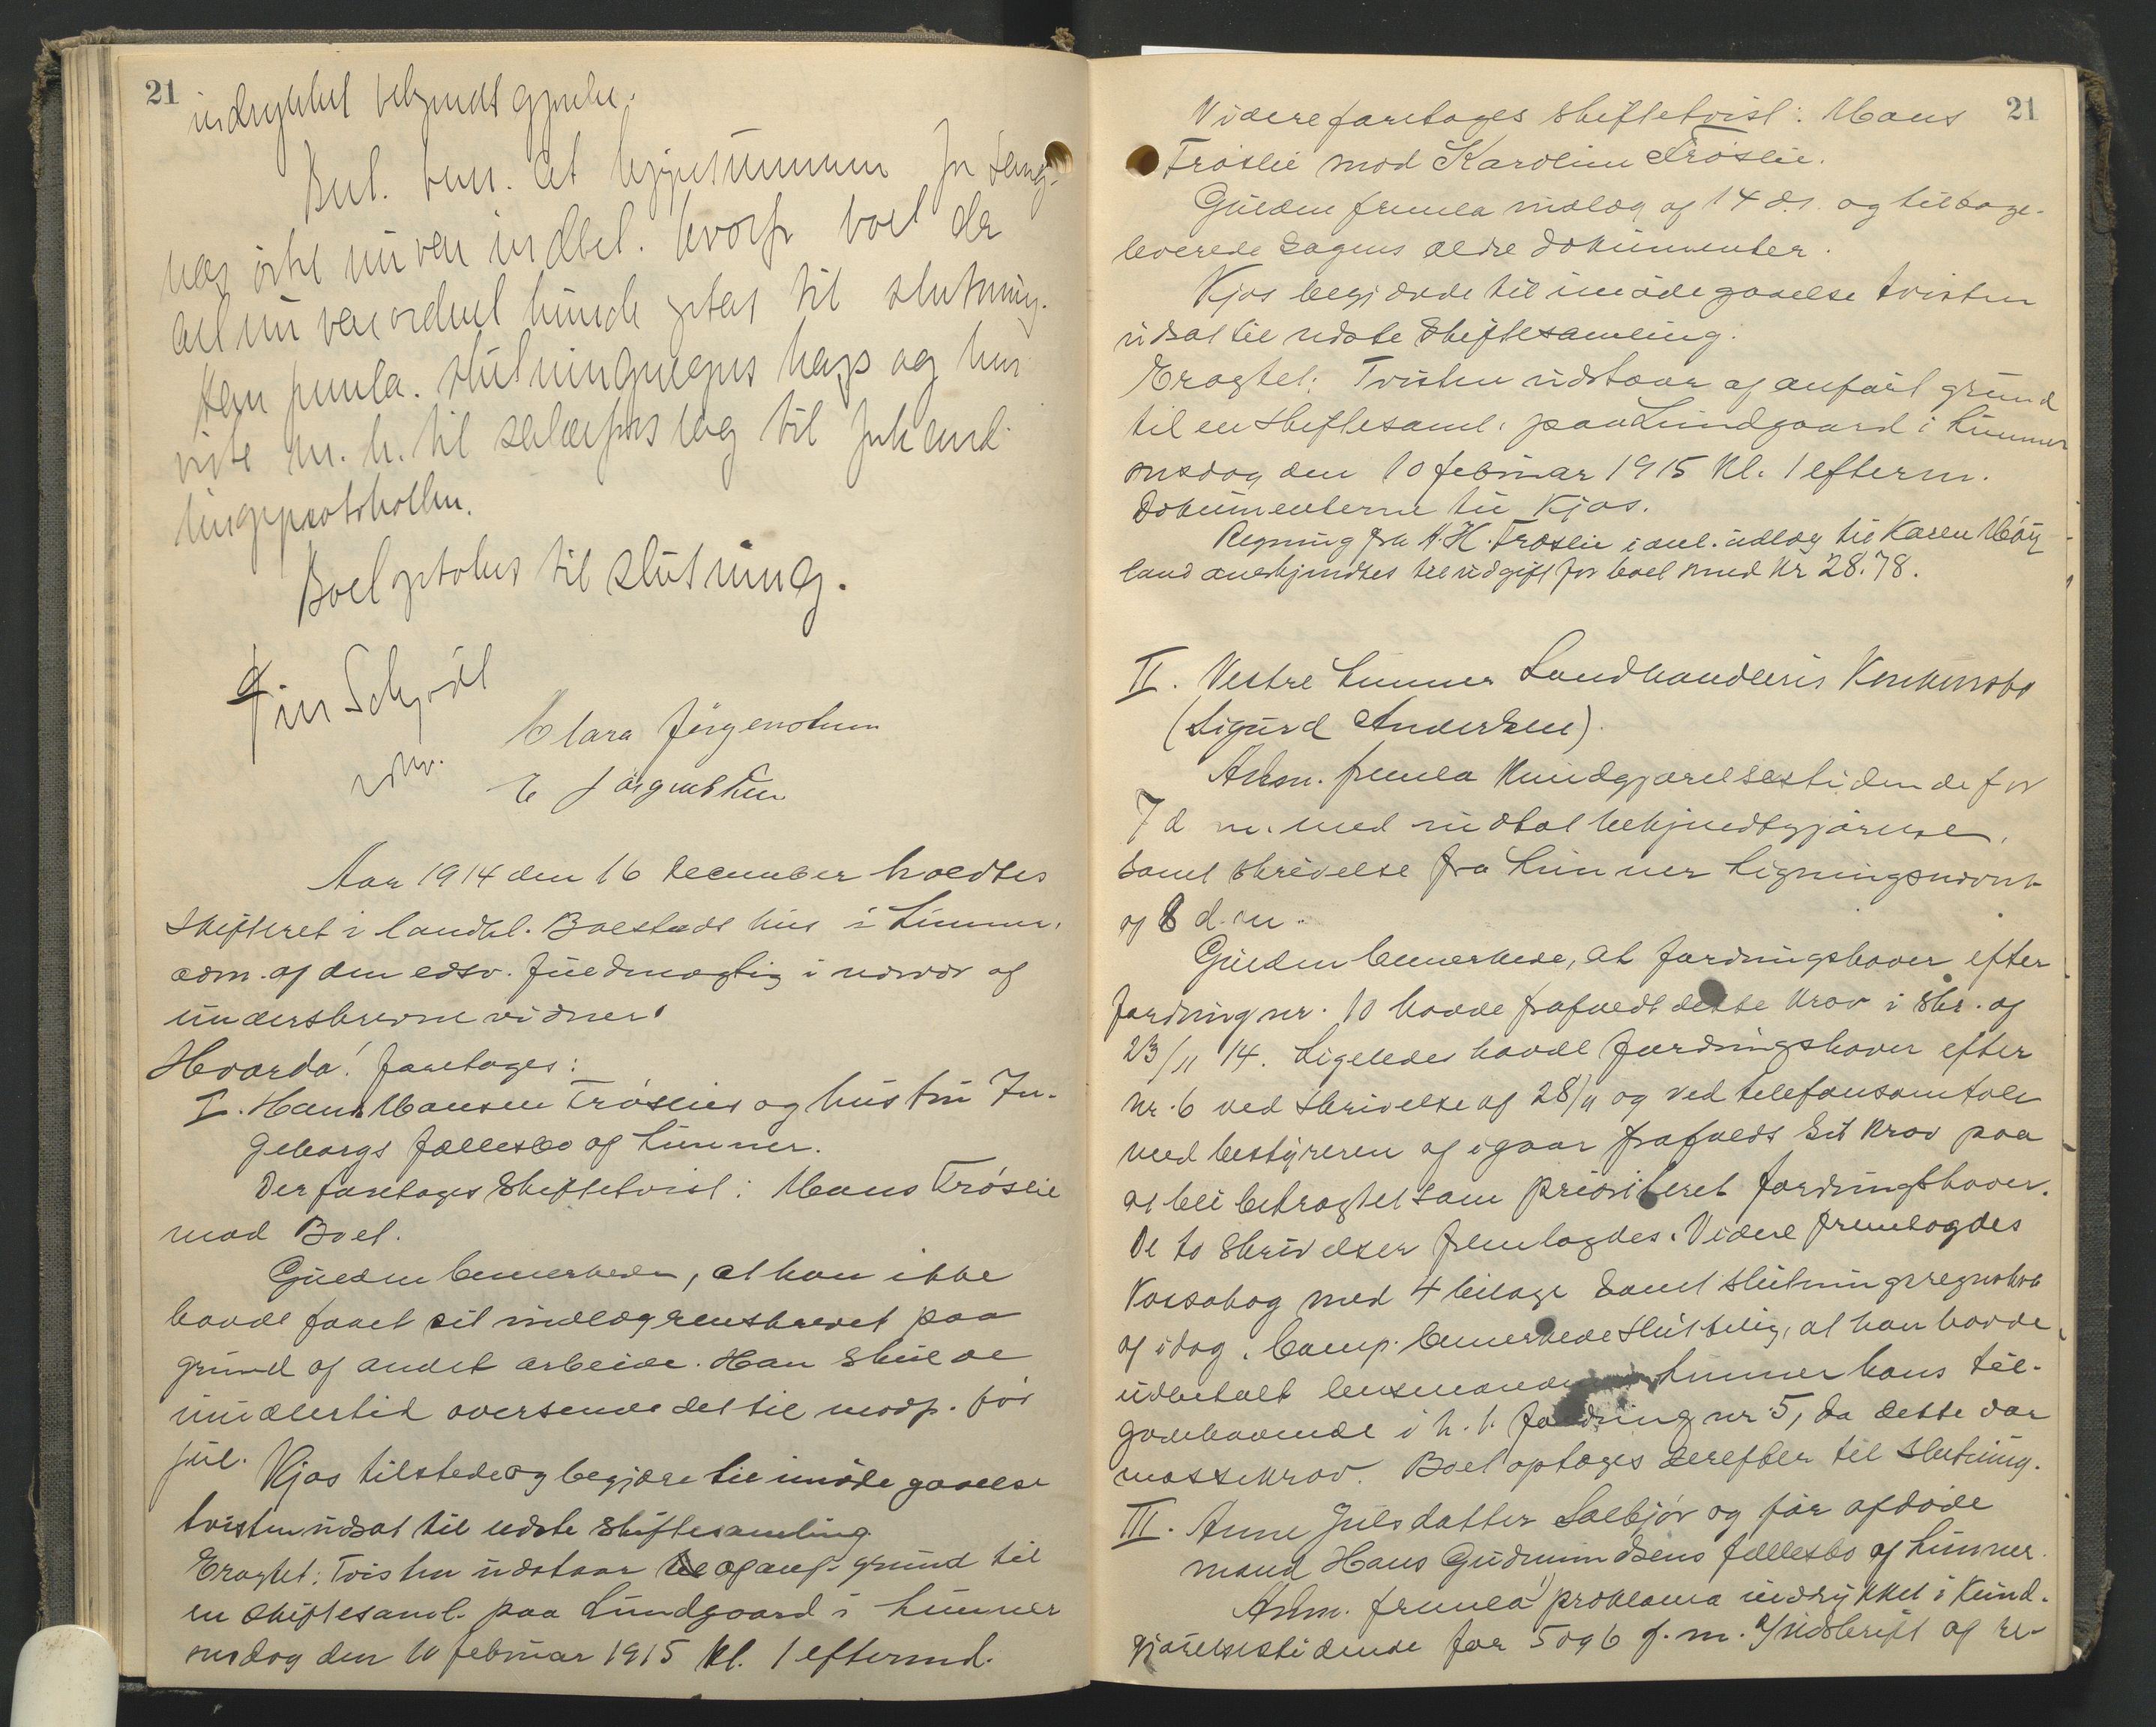 21
indrykket bekjendtgjørelse.
Best. bem. at kjøpesummen for
var ikke nu var indbet. hvorfor boet da
alt nu var ordnet kunde optas til slutning.
Han freml. slutningsregnskap og hen
viste m. h. til salær forslag til forhand
lingsprotokollen.
Boet optokes til slutning.
Finn Schjødt
edsv.
Clara Jörgenstuen
E Jörgenstuen
Aar 1914 den 16 december holdtes
skifteret i landhl. Boestads hus i Lunner,
adm. af den edsv. fuldmægtig i nærvær af
underskrevne vidner.
Hvorda! foretoges:
I. Hans Hansen Tröslies og hustru In-
geborgs fællesbo af Lunner.
Der foretoges skiftetvist: Hans Tröslie
mod Boet.
Gulden bemerkede, at han ikke
havde faaet sit indlæg renskrevet paa
grund af andet arbeide. Han skulde
imidlertid oversende det til modp. før
jul.
Kjos tilstede og begjære til imødegaaelse
tvisten udsat til næste skiftesamling
Eragtet: Tvisten udstaar af anf. grund til
en skiftesaml. paa Lundgaard i Lunner
onsdag den 10 februar 1915 kl. 1 eftermd.
21
Videre foretages skiftetvist: Hans
Tröslie mod Karoline Tröslie.
Gulden fremla indlæg af 14 ds. og tilbage-
leverede sagens ældre dokumenter.
Kjos begjærede til imødegaaelse tvisten
udsat til næste skiftesamling.
Eragtet: Tvisten udstaar af anført grund
til en skiftesaml. paa Lundgaard i Lunner
onsdag den 10 februar 1915 kl. 1 efterm.
Dokumenterne til Kjos.
Regning fra H. H. Tröslie i anl. udlæg til Karen Höy
land anerkjendtes til udgift for boet med Kr 28.78.
II. Vestre Lunner Landhandleris Konkursbo
(Sigurd Andersen).
Adm. fremla Kundgjørelsestidende for
7 d m. med indtat bekjendtgjørelse,
samt skrivelse fra Lunner Ligningsnævnd
af 8 d. m.
Gulden bemerkede, at fordringshaver efter
fordring nr. 10 havde frafaldt dette krav i skr. af
23/11 14. Ligeledes havde fordringshaver efter
nr. 6 ved skrivelse af 28/11 og ved telefonsamtale
med bestyreren af igaar frafaldt sit krav paa
at bli betragtet som prioriteret fordringshaver.
De to skrivelser fremlagdes. Videre fremlagdes
Kassabog med 4 bilage samt slutningsregnskab
af idag. Comp. bemerkede sluttelig, at han havde
udbetalt lensmanden i Lunner hans til-
godehavende i h. t. fordring nr. 5, da dette var
massekrav. Boet optages derefter til slutning.
III. Anne Julsdatter Solbjör og før afdöde
mand Hans Gudmundsens fællesbo af Lunner.
Adm. fremla 1) proklama indrykket i Kund-
gjørelsestidende for 5 og 6 f. m. Indskrift af re-